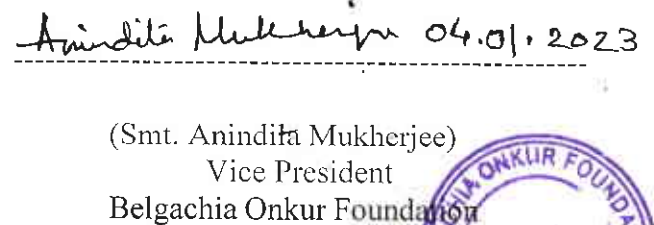 Anindita Mukherjee 04.01.2023
(Smt. Anindita Mukherjee)
Vice President
Belgachia Onkur Foundation
ONKUR FOUNDA